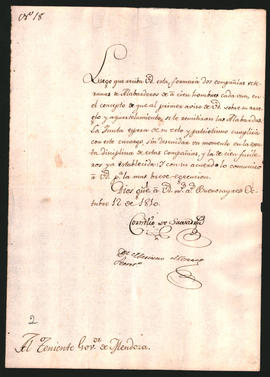 Luego que reciba Vd. esta, formará dos compañias vete
ranas de Alabarderos de á cien hombres cada una, en
el concepto de que al primer aviso de Vd. sobre su arre
glo y aquartelamiento, se le remitiran las Alabardas.
La Junta espera de su zelo y patriotismo cumplirá
con este encargo, sin descuidar un momento en la exac
ta disciplina de estas compañias, y la de cien fusile
ros ya establecida: Y con su acuerdo lo comunico
á Vd. pa. la mas breve execucion.
Dios gue. á Vd. ms. as. Buenos Ayres Oc
tubre 12 de 1810.
Cornelio de Saavedra
Dr. Mariano Moreno
Secro.
2
Al Teniente Govr. de Mendoza.